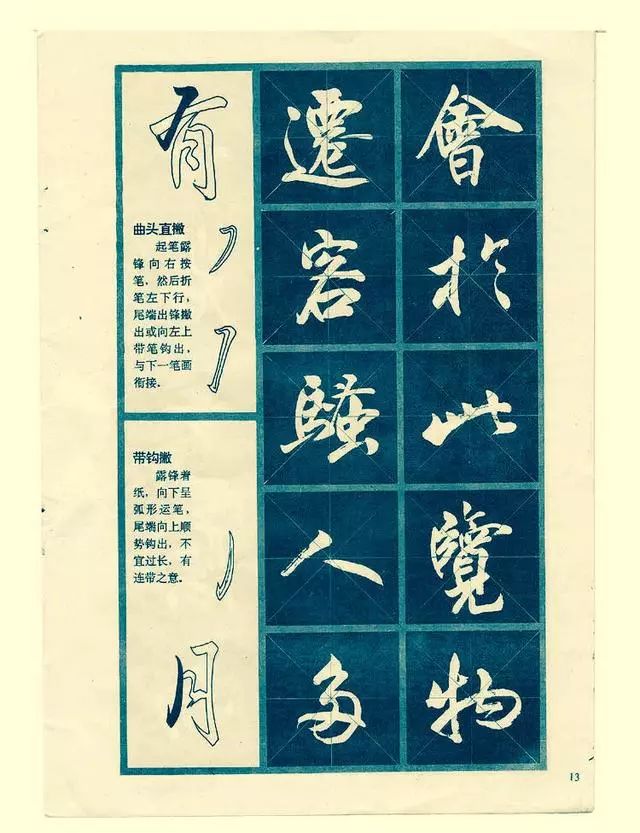 有
曲头直撇
起笔露
锋向右按
笔，然后折
笔左下行，
尾端出锋撇
出或向左上
带笔钩出，
与下一笔画
衔接.
带钩撇
露锋着
纸，向下呈
弧形运笔，
尾端向上顺
势钩出，不
宜过长，有
连带之意.
月
遷客騷人多
會於此覽物
13